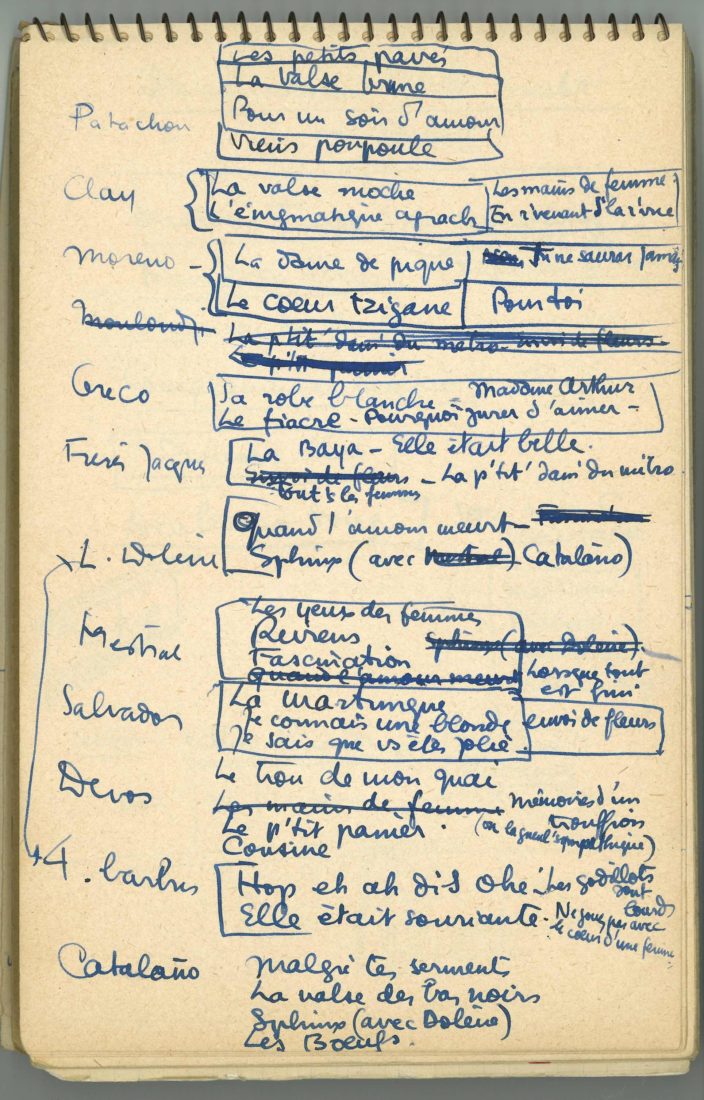 Les petits pavés
La valse brune
Patachon Pour un soir d'amour
Viens poupoule
Clay La valse moche Les mains de femme
L'énigmatique apache En r'venant d'la r'vue
Moreno - La dame de pique Tu ne sauras jamais
Le coeur tzigane Pour toi
Mouloudji La p'tit' dam' du métro - envoi de fleurs -
Le p'tit panier
Greco Sa robe blanche = Madame Arthur
Le fiacre - Pourquoi jurer d'aimer -
Frères Jacques La Baya - Elle était belle.
Envoi de fleurs - La p'tit' dam' du métro
tout's les femmes
Quand l'amour meurt -
L. Dolène Sphinx (avec Mestral) Catalaño)
Les yeux des femmes
Mestral Reviens Sphinx (avec Dolène).
Fascination
Quand l'amour meurt Lorsque tout
est fini
Salvador La Martinique
Je connais une blonde envoi de fleurs
Je sais que vs êtes jolie.
Devos Le trou de mon quai
Les mains de femme Mémoires d'un
trouffion
Le p'tit panier. (ou la gueul' sympathique)
Cousine
4. barbus Hop eh ah di ohé. Les godillots
sont
lourds
Elle était souriante - Ne jouez pas avec
le coeur d'une femme
Catalaño Malgré tes serments
La valse des bas noirs
Sphinx (avec Dolène)
Les Boeufs.